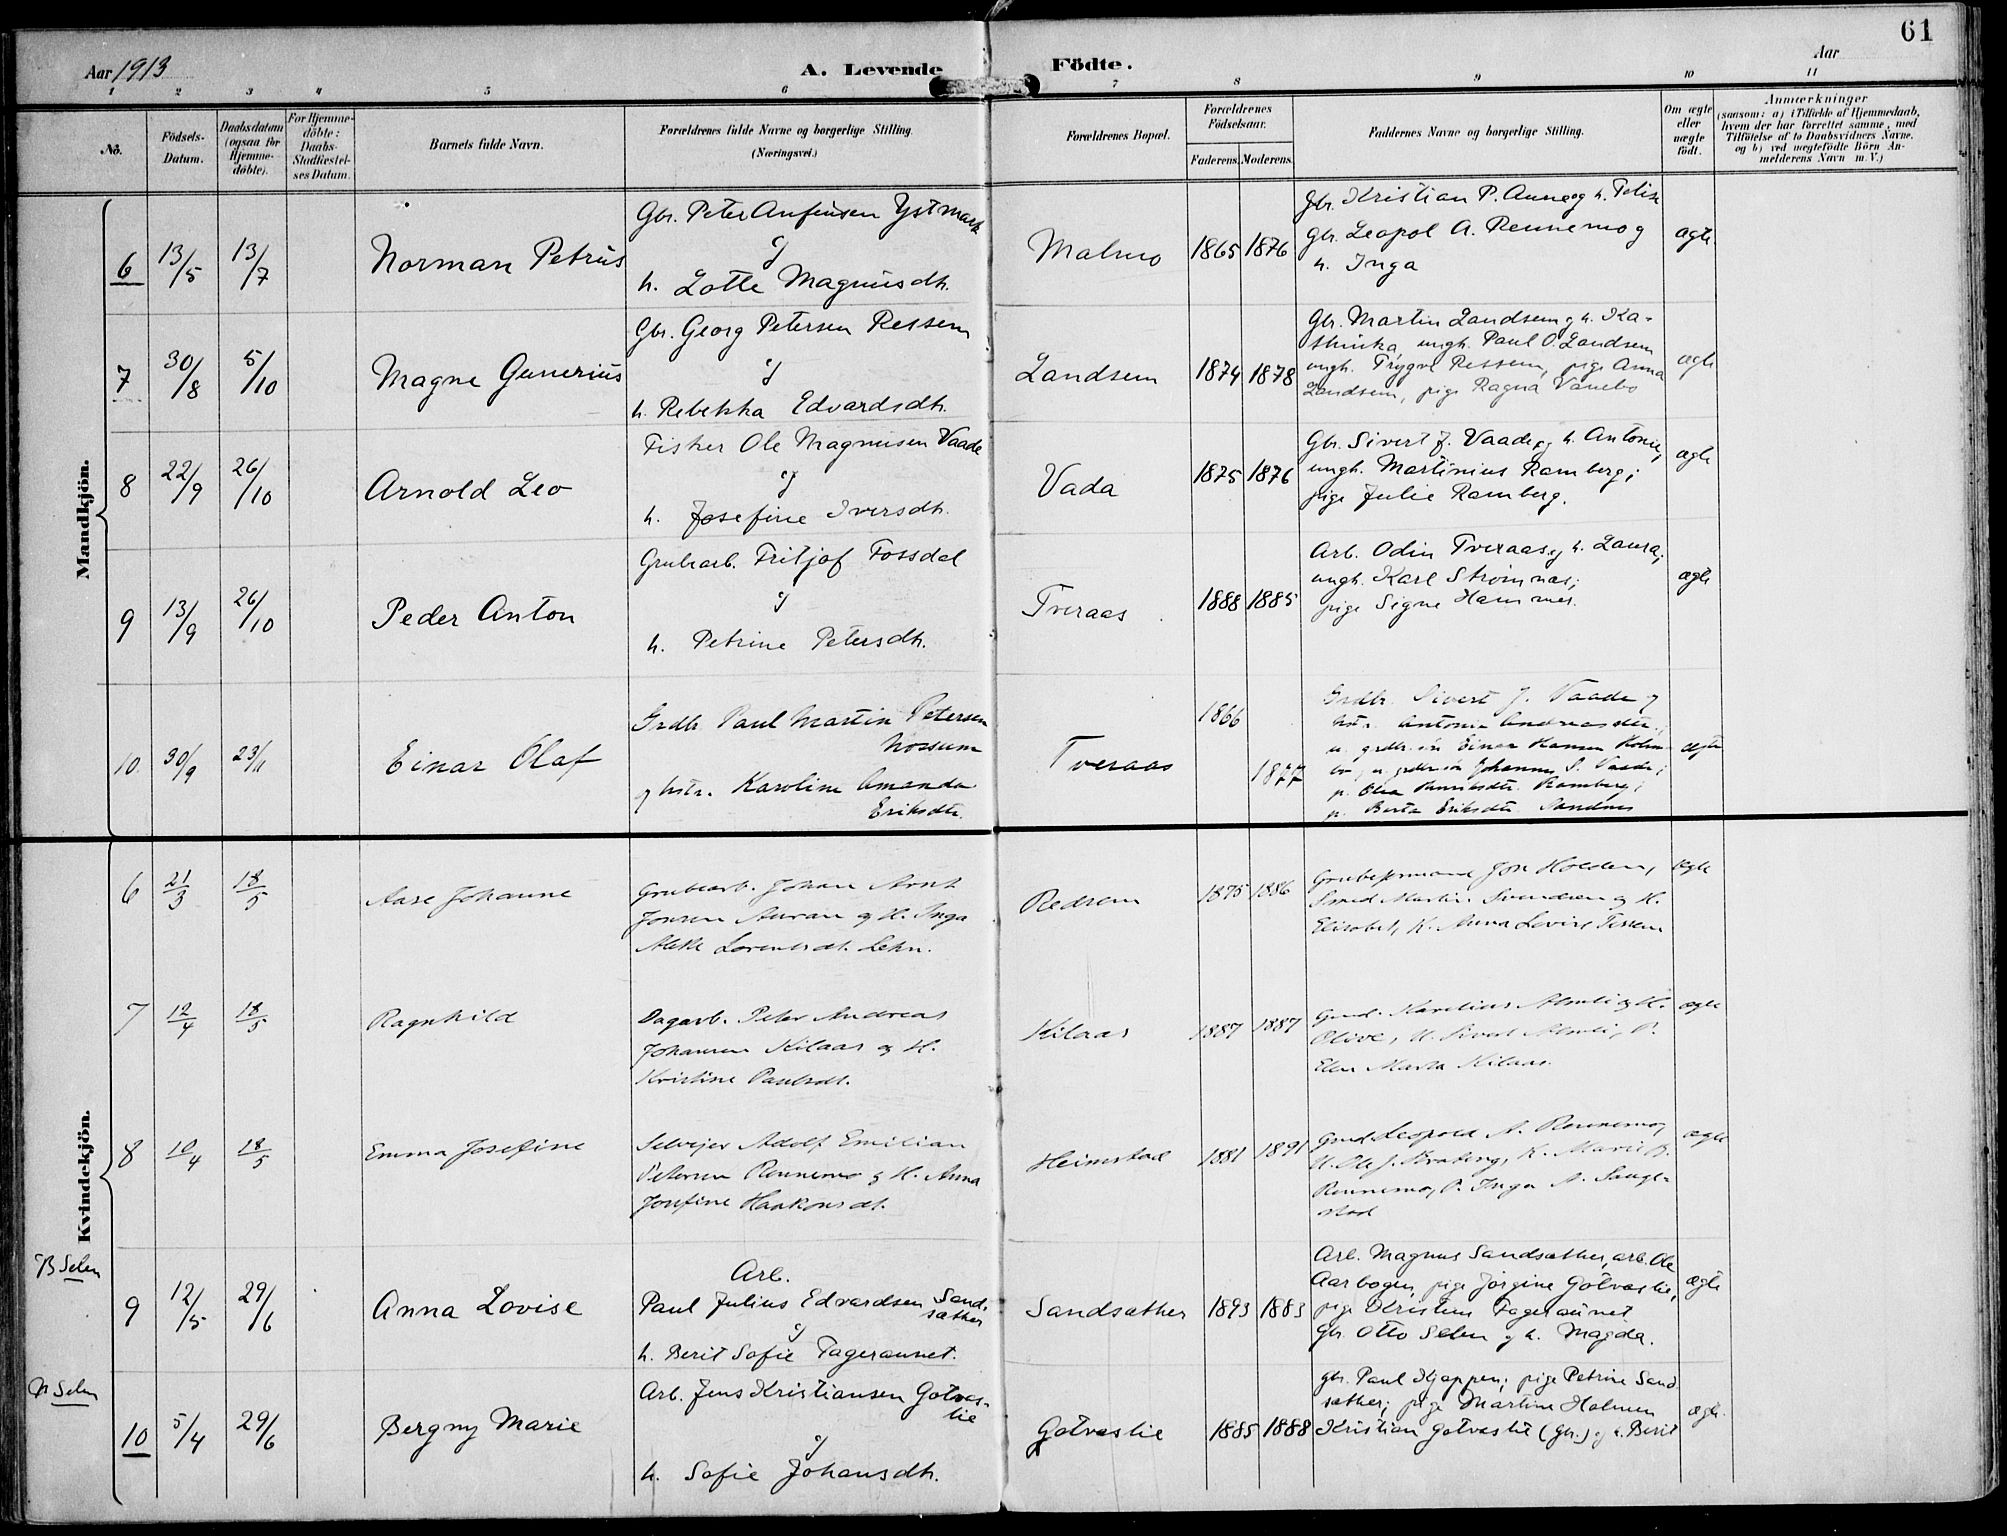 61
Aar 1913
A. Levende
Födte.
Aar
1 2 3 4 5 6 7 8 9 10 11
No.
Födsels-Datum.
Daabsdatum (ogsaa for Hjemme-döbte).
For Hjemme-döbte: Daabs-Stadfæstel-ses Datum.
Barnets fulde Navn.
Forældrenes fulde Navne og borgerlige Stilling.
(Næringsvei.)
Forældrenes Bopæl.
Forældrenes Födselsaar.
Faderens. Moderens.
Faddernes Navne og borgerlige Stilling.
Om ægte eller uægte födt.
Anmærkninger
(saasom: a) i Tilfælde af Hjemmedaab, hvem der har forrettet samme, med Tilföielse af to Daabsvidners Navne, og b) ved uægtefödte Börn Anmelderens Navn m. V.)
Mandkjön.
6 13/5 13/7 Norman Petrus
Gbr. Peter Anfinsen Ystmark
og
h. Lotte Magnusdtr.
Malmo 1865 1876
Gbr. Kristian P. Aunet og h.
Gbr. Leopol A. Rennemo og
h. Inga
ægte
7 30/8 5/10 Magne Gunerius
Gbr. Georg Petersen Ressem
og
h. Rebekka Edvardsdtr.
Landsem 1874 1878
Gbr. Martin Landsem og h. Ka-
thinka, ungk. Paul O. Landsem
ungk. Trygve Ressem, pige Anna
Landsem, pige Ragna Vanebo
ægte
8 22/9 26/10 Arnold Leo
Fisker Ole Magnusen Vaade
og
h. Josefine Iversdtr.
Vada 1875 1876
Gbr. Sivert J. Vaade og h. Antonie,
ungk. Martinius Ramberg;
pige Julie Ramberg.
ægte
9 13/9 26/10 Peder Anton
Grubearb. Fritjof Fossdal
og
h. Petrine Petersdtr.
Tveraas 1888 1885
Arb. Odin Tveraas og h. Laura;
ungk. Karl Strømnæs;
pige Signe Hammer.
ægte
10. 30/9 23/11 Einar Olaf
Grdbr. Paul Martin Petersen
Nossum
og hstr. Karoline Amanda
Eriksdtr.
Tveraas 1866 1877
Grdbr. Sivert J. Vaade og
hstr. Antonie Andreasdtr.,
u. grdbr. sön Einar Hansen Holm-
bo, u. grdbr. sön Johannes S. Vaade;
p. Olea Ramberg;
p. Berta Eriksdtr. Sandnes
ægte
Kvindekjön.
6 21/3 18/5 Aase Johanne
Grubearb. Johan Arnt
Jonsen Auran og H. Inga
Lorentsdt. Lehn.
Redsem 1875 1886
Jon Holden,
Smed Martin Svendsen og H.
Elisabet, K. Anna Lovise Tessem
ægte
7 12/4 18/5 Ragnhild
Dagarb. Peter Andreas
Johansen Kilaas og H.
Kristine Paulsdt.
Kilaas 1887 1887
Gmd. Karelius Almli og H.
Olive, U. Sivert Almli, P.
Ellen Marta Kilaas.
ægte
8 10/4 18/5 Emma Josefine
Selvejer Adolf Emilian
Petersen Rennemo og H. Anna
Josefine Haakonsdt.
Heimstad 1881 1891
Gmd. Leopold A. Rennemo,
U. Ole J. K. Marie P.
Rennemo, P. Inga A. Saugestad
ægte
B Selen
9 12/5 29/6 Anna Lovise
Arb.
Paul Julius Edvardsen Sand-
sæther
og
h. Berit Sofie Fageraunet.
Sandsæther 1893 1883
Arb. Magnus Sandsæther, arb. Ole
Aarbogen, pige Jørgine Gotvaslie,
pige Kristine Fageraunet
Gbr. Otto Selen og h. Magda.
ægte
N Selen
10 5/4 29/6 Bergny Marie
Arb. Jens Kristiansen Gotvas-
lie
og
h. Sofie Johansdtr.
Gotvaslie 1885 1888
gbr. Paul Kjeppen; pige Petrine Sand-
sæther; pige Martine Holmen
Kristian Gotvaslie (gbr.) og h. Berit
ægte